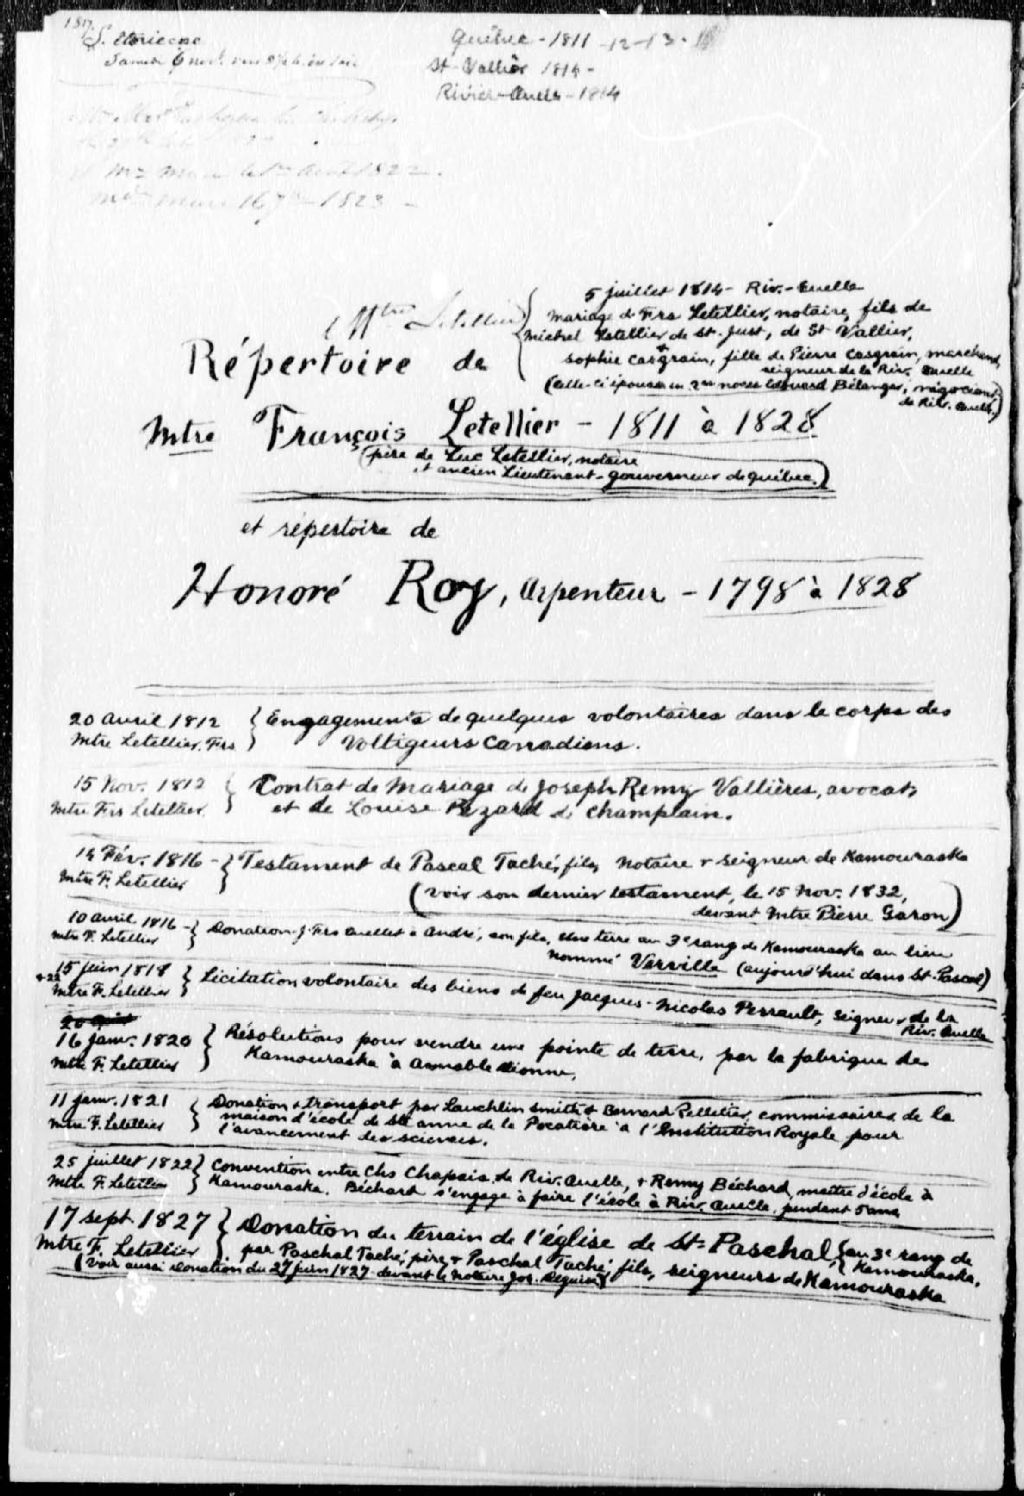 1817
Québec - 1811 - 12 - 13 -
St-Vallier 1814 -
Riviè-Ouelle - 1814
avril 1822.
1823 -
Letellier
5 juillet 1814 - Riv.-Ouelle
Mariage d Frs Letellier, notaire, fils de
Michel Letellier de St. Just, de St Vallier,
+
Sophie Casgrain, fille de Pierre Casgrain, marchand,
seigneur de la Riv. Ouelle
(Celle-ci épousa en 2es noces Edouard Bélanger, négociant,
de Riv. Ouelle)
Répertoire de
Mtre François Letellier - 1811 à 1828
(père de Luc Letellier, notaire
et ancien Lieutenant-gouverneur de Québec.)
et répertoire de
Honoré Roy, Arpenteur - 1798 à 1828
20 Avril 1812 { Engagements de quelques volontaires dans le corps des
Mtre Letellier, Frs } Voltigeurs Canadiens.
15 Nov. 1812 { Contrat de Mariage de Joseph Remy Vallières, avocat,
Mtre Frs Letellier { et de Louise Pezard d Champlain.
Fév. 1816 - { Testament de Pascal Taché, fils, Notaire + Seigneur de Kamouraska
Mtre F. Letellier (voir son dernier testament, le 15 Nov. 1832,
devant Mtre Pierre Garon)
10 avril 1816 - { Donation J. Frs Ouellet à André, son fils, une terre au 3e rang de Kamouraska au lieu
Mtre F. Letellier nommé Verville (aujourd'hui dans St-Pascal)
15 Juin 1818 { Licitation volontaire des biens de feu Jacques-Nicolas Perrault, Seigneur de la
Mtre F. Letellier Riv. Ouelle
16 Janv. 1820 { Résolutions pour vendre une pointe de terre, par la fabrique de
Mtre F. Letellier Kamouraska à Amable Dionne.
11 Janv. 1821 { Donation + transport par Lauchlin Smith + Bernard Pelletier, commissaires de la
Mtre F. Letellier maison d'école de Ste anne de la Pocatière à l'Institution Royale pour
l'avancement des sciences.
25 juillet 1822 } Convention entre Chs Chapais, de Riv. Ouelle, + Remy Béchard, maître d'école à
Mtre F. Letellier } Kamouraska. Béchard s'engage à faire l'école à Riv. Ouelle, pendant 5 ans
17 Sept. 1827 } Donation du terrain de l'église de St-Paschal, { au 3e rang de
Mtre F. Letellier } par Paschal Taché, père, + Paschal Taché, fils, seigneurs de Kamouraska { Kamouraska.
(Voir aussi Donation du 27 juin 1827 devant le Notaire Jos. Deguise)